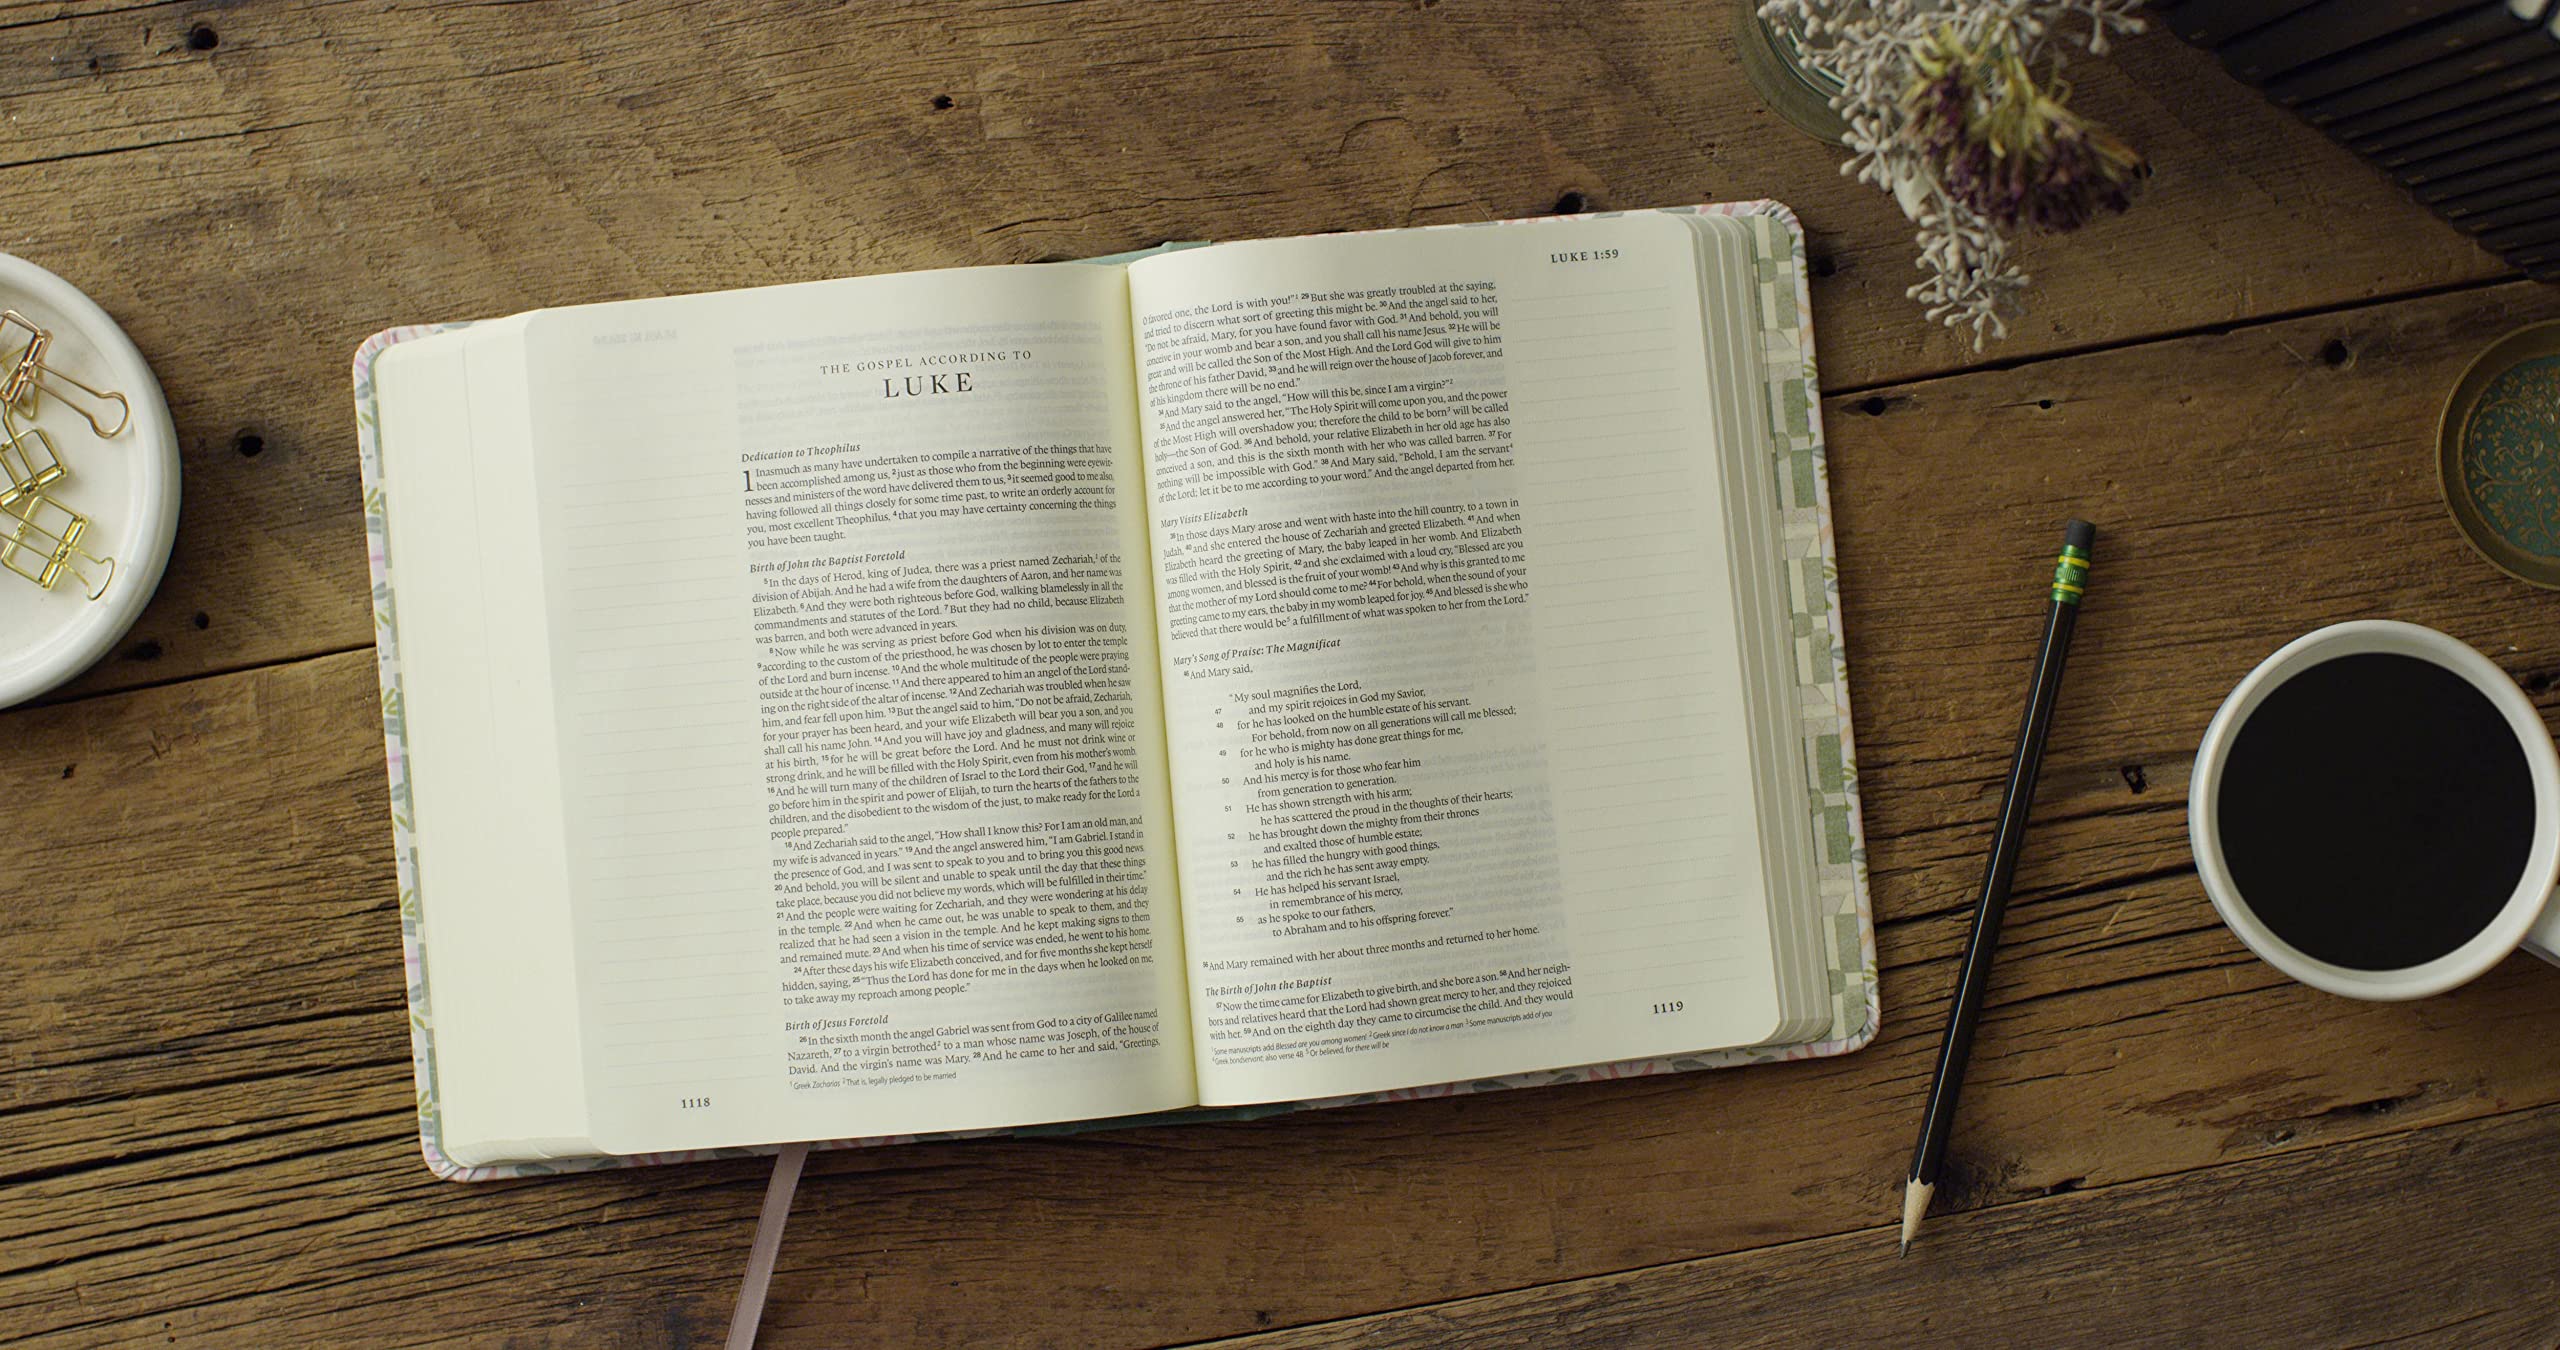 THE GOSPEL ACCORDING TO
LUKE
Dedication to Theophilus
1 Inasmuch as many have undertaken to compile a narrative of the things that have
been accomplished among us, 2 just as those who from the beginning were eyewit-
nesses and ministers of the word have delivered them to us, 3 it seemed good to me also,
having followed all things closely for some time past, to write an orderly account for
you, most excellent Theophilus, 4 that you may have certainty concerning the things
you have been taught.
Birth of John the Baptist Foretold
5 In the days of Herod, king of Judea, there was a priest named Zechariah,1 of the
division of Abijah. And he had a wife from the daughters of Aaron, and her name was
Elizabeth. 6 And they were both righteous before God, walking blamelessly in all the
commandments and statutes of the Lord. 7 But they had no child, because Elizabeth
was barren, and both were advanced in years.
8 Now while he was serving as priest before God when his division was on duty,
9 according to the custom of the priesthood, he was chosen by lot to enter the temple
of the Lord and burn incense. 10 And the whole multitude of the people were praying
outside at the hour of incense. 11 And there appeared to him an angel of the Lord stand-
ing on the right side of the altar of incense. 12 And Zechariah was troubled when he saw
him, and fear fell upon him. 13 But the angel said to him, “Do not be afraid, Zechariah,
for your prayer has been heard, and your wife Elizabeth will bear you a son, and you
shall call his name John. 14 And you will have joy and gladness, and many will rejoice
at his birth, 15 for he will be great before the Lord. And he must not drink wine or
strong drink, and he will be filled with the Holy Spirit, even from his mother’s womb.
16 And he will turn many of the children of Israel to the Lord their God, 17 and he will
go before him in the spirit and power of Elijah, to turn the hearts of the fathers to the
children, and the disobedient to the wisdom of the just, to make ready for the Lord a
people prepared.”
18 And Zechariah said to the angel, “How shall I know this? For I am an old man, and
my wife is advanced in years.” 19 And the angel answered him, “I am Gabriel. I stand in
the presence of God, and I was sent to speak to you and to bring you this good news.
20 And behold, you will be silent and unable to speak until the day that these things
take place, because you did not believe my words, which will be fulfilled in their time.”
21 And the people were waiting for Zechariah, and they were wondering at his delay
in the temple. 22 And when he came out, he was unable to speak to them, and they
realized that he had seen a vision in the temple. And he kept making signs to them
and remained mute. 23 And when his time of service was ended, he went to his home.
24 After these days his wife Elizabeth conceived, and for five months she kept herself
hidden, saying, 25 “Thus the Lord has done for me in the days when he looked on me,
to take away my reproach among people.”
Birth of Jesus Foretold
26 In the sixth month the angel Gabriel was sent from God to a city of Galilee named
Nazareth, 27 to a virgin betrothed2 to a man whose name was Joseph, of the house of
David. And the virgin’s name was Mary. 28 And he came to her and said, “Greetings,
1 Greek Zacharias 2 That is, legally pledged to be married
1118
LUKE 1:59
O favored one, the Lord is with you!”1 29 But she was greatly troubled at the saying,
and tried to discern what sort of greeting this might be. 30 And the angel said to her,
“Do not be afraid, Mary, for you have found favor with God. 31 And behold, you will
conceive in your womb and bear a son, and you shall call his name Jesus. 32 He will be
great and will be called the Son of the Most High. And the Lord God will give to him
the throne of his father David, 33 and he will reign over the house of Jacob forever, and
of his kingdom there will be no end.”
34 And Mary said to the angel, “How will this be, since I am a virgin?”2
35 And the angel answered her, “The Holy Spirit will come upon you, and the power
of the Most High will overshadow you; therefore the child to be born3 will be called
holy—the Son of God. 36 And behold, your relative Elizabeth in her old age has also
conceived a son, and this is the sixth month with her who was called barren. 37 For
nothing will be impossible with God.” 38 And Mary said, “Behold, I am the servant4
of the Lord; let it be to me according to your word.” And the angel departed from her.
Mary Visits Elizabeth
39 In those days Mary arose and went with haste into the hill country, to a town in
Judah, 40 and she entered the house of Zechariah and greeted Elizabeth. 41 And when
Elizabeth heard the greeting of Mary, the baby leaped in her womb. And Elizabeth
was filled with the Holy Spirit, 42 and she exclaimed with a loud cry, “Blessed are you
among women, and blessed is the fruit of your womb! 43 And why is this granted to me
that the mother of my Lord should come to me? 44 For behold, when the sound of your
greeting came to my ears, the baby in my womb leaped for joy. 45 And blessed is she who
believed that there would be5 a fulfillment of what was spoken to her from the Lord.”
Mary’s Song of Praise: The Magnificat
46 And Mary said,
“My soul magnifies the Lord,
47 and my spirit rejoices in God my Savior,
48 for he has looked on the humble estate of his servant.
For behold, from now on all generations will call me blessed;
49 for he who is mighty has done great things for me,
and holy is his name.
50 And his mercy is for those who fear him
from generation to generation.
51 He has shown strength with his arm;
he has scattered the proud in the thoughts of their hearts;
52 he has brought down the mighty from their thrones
and exalted those of humble estate;
53 he has filled the hungry with good things,
and the rich he has sent away empty.
54 He has helped his servant Israel,
in remembrance of his mercy,
55 as he spoke to our fathers,
to Abraham and to his offspring forever.”
56 And Mary remained with her about three months and returned to her home.
The Birth of John the Baptist
57 Now the time came for Elizabeth to give birth, and she bore a son. 58 And her neigh-
bors and relatives heard that the Lord had shown great mercy to her, and they rejoiced
with her. 59 And on the eighth day they came to circumcise the child. And they would
1 Some manuscripts add Blessed are you among women! 2 Greek since I do not know a man 3 Some manuscripts add of you
4 Greek bondservant; also verse 48 5 Or believed, for there will be
1119